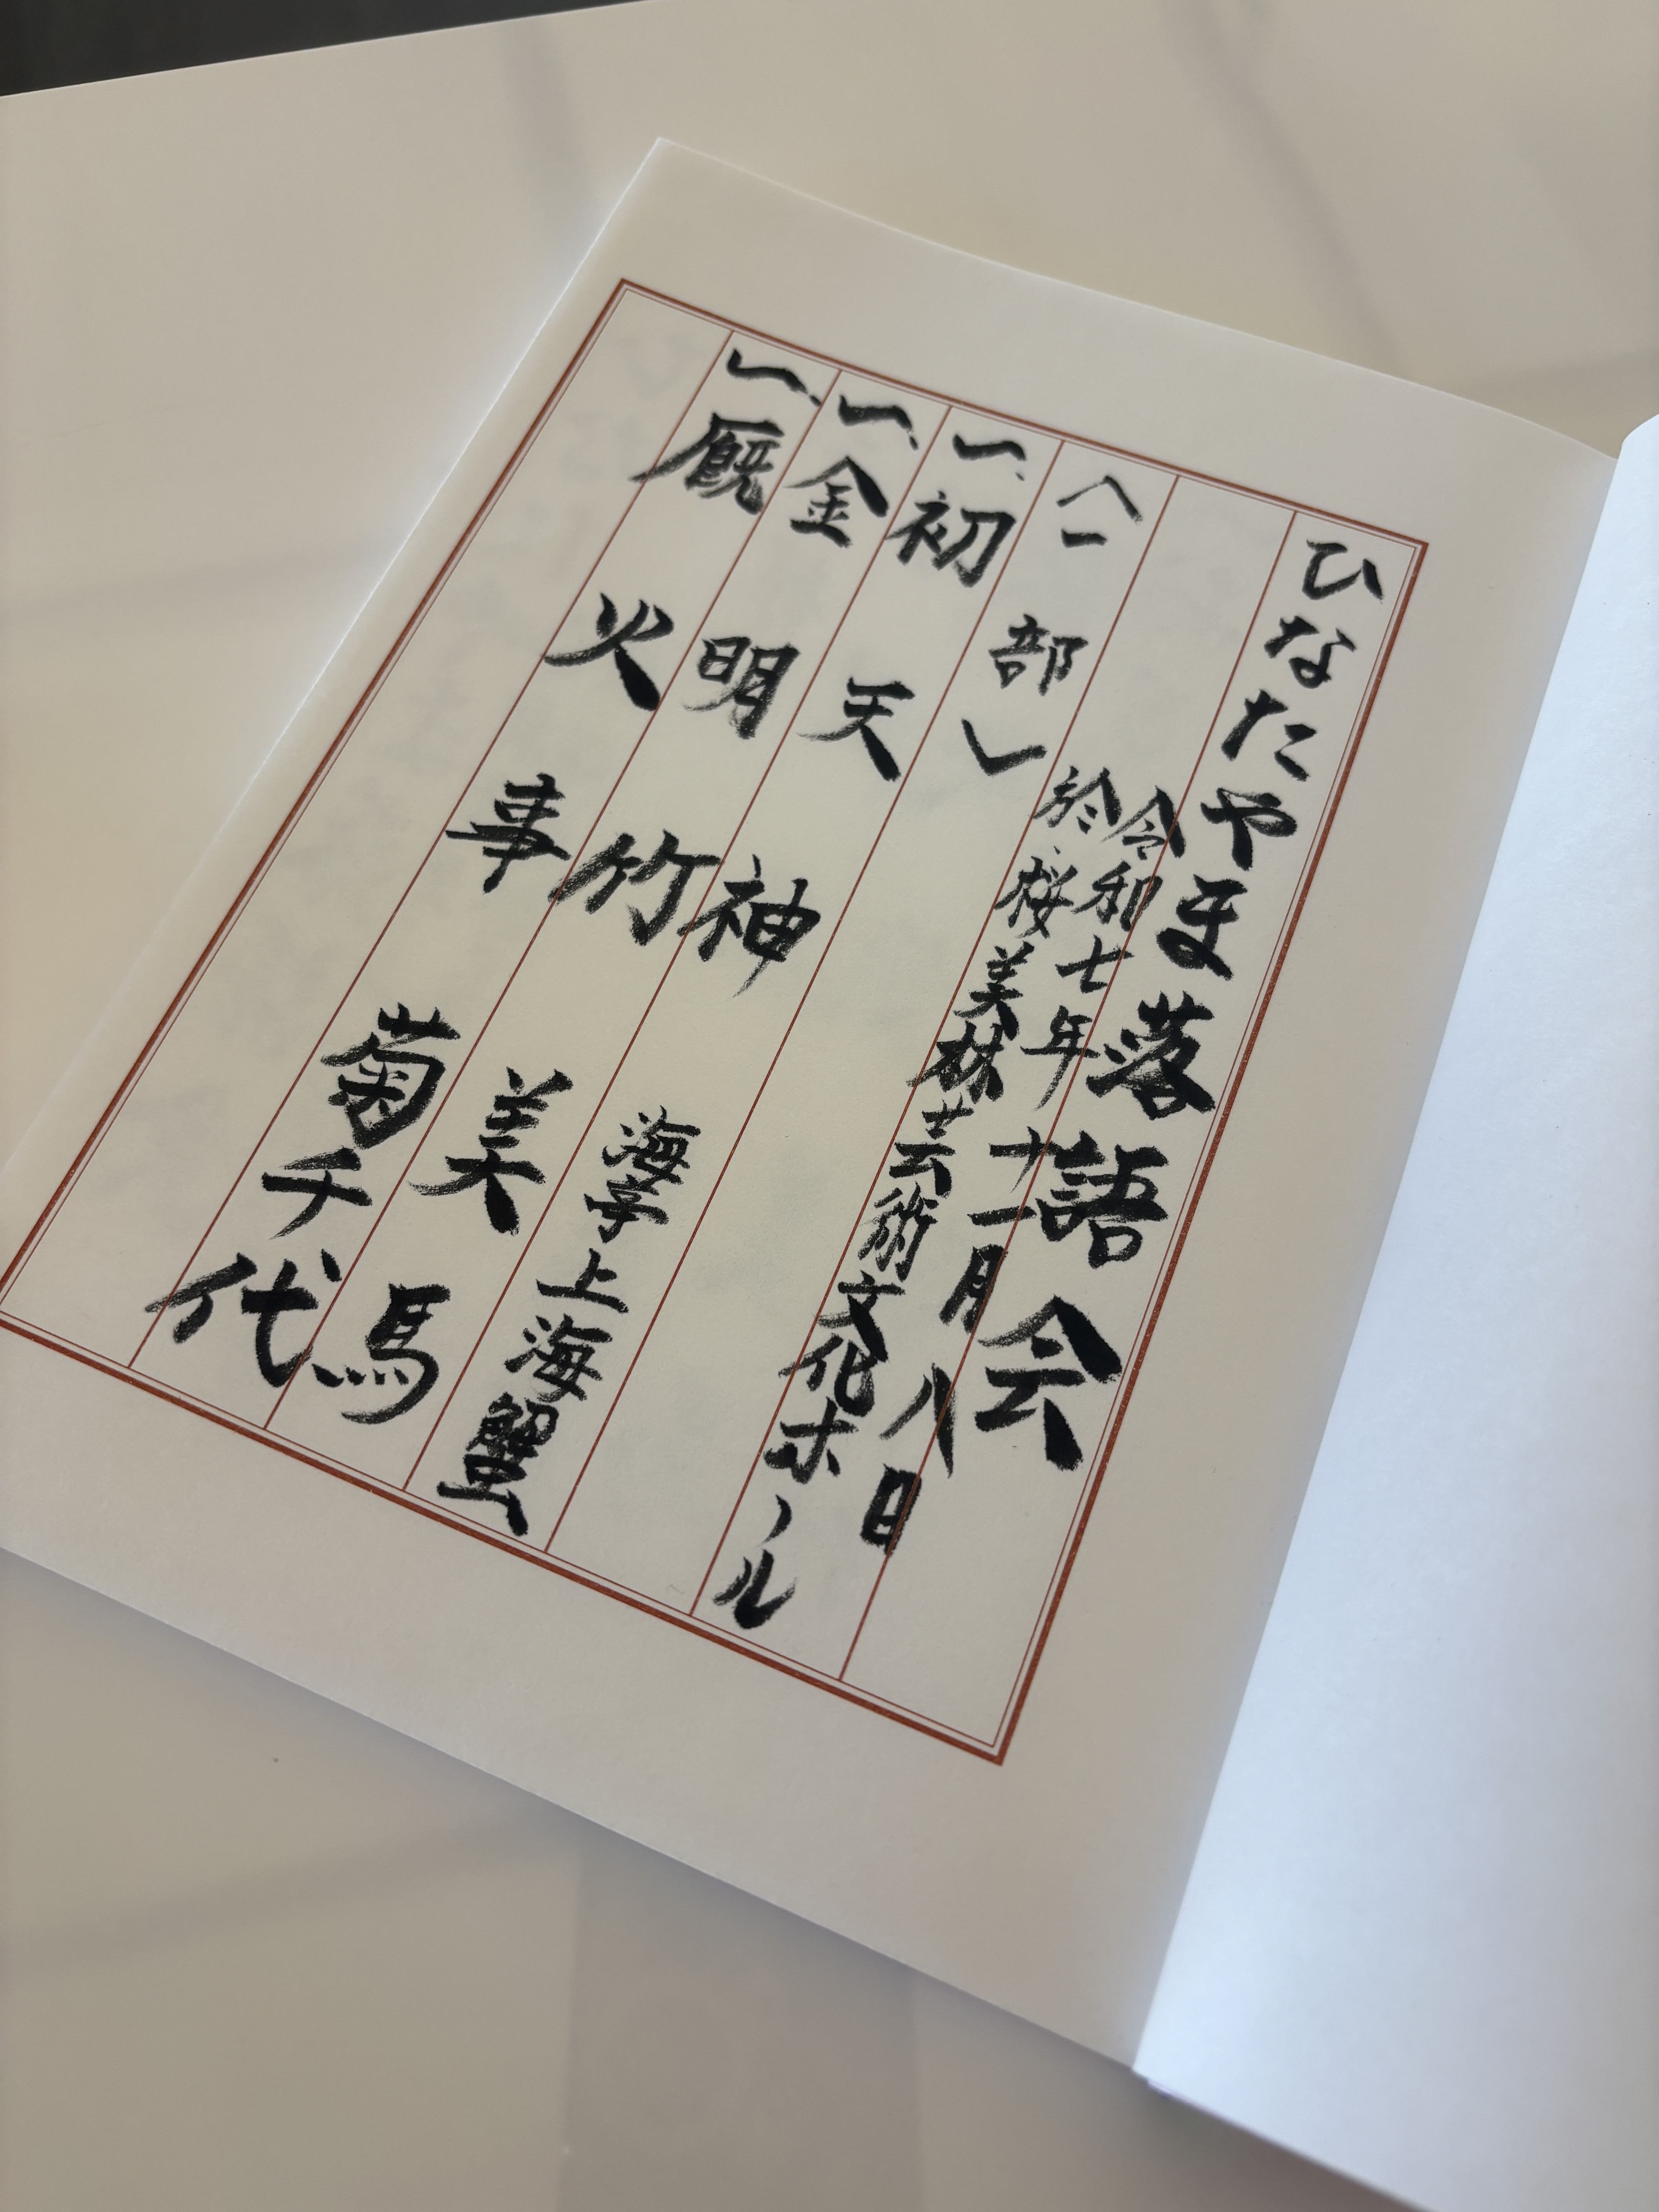 ひなたやま落語会
令和七年十一月八日
於、桜美林芸術文化ホール
〈一部〉
一、初天神 海亭上海蟹
一、金明竹 美馬
一、厩火事 菊千代